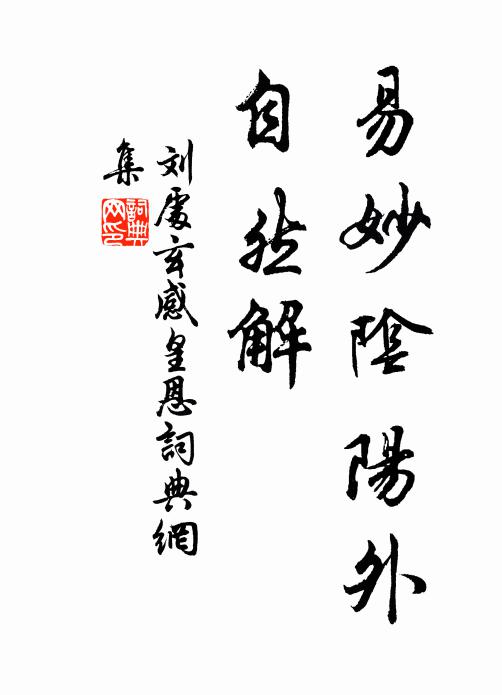 易妙陰陽外
自然解
刘處玄感皇恩詞典網
集
詞典
网印